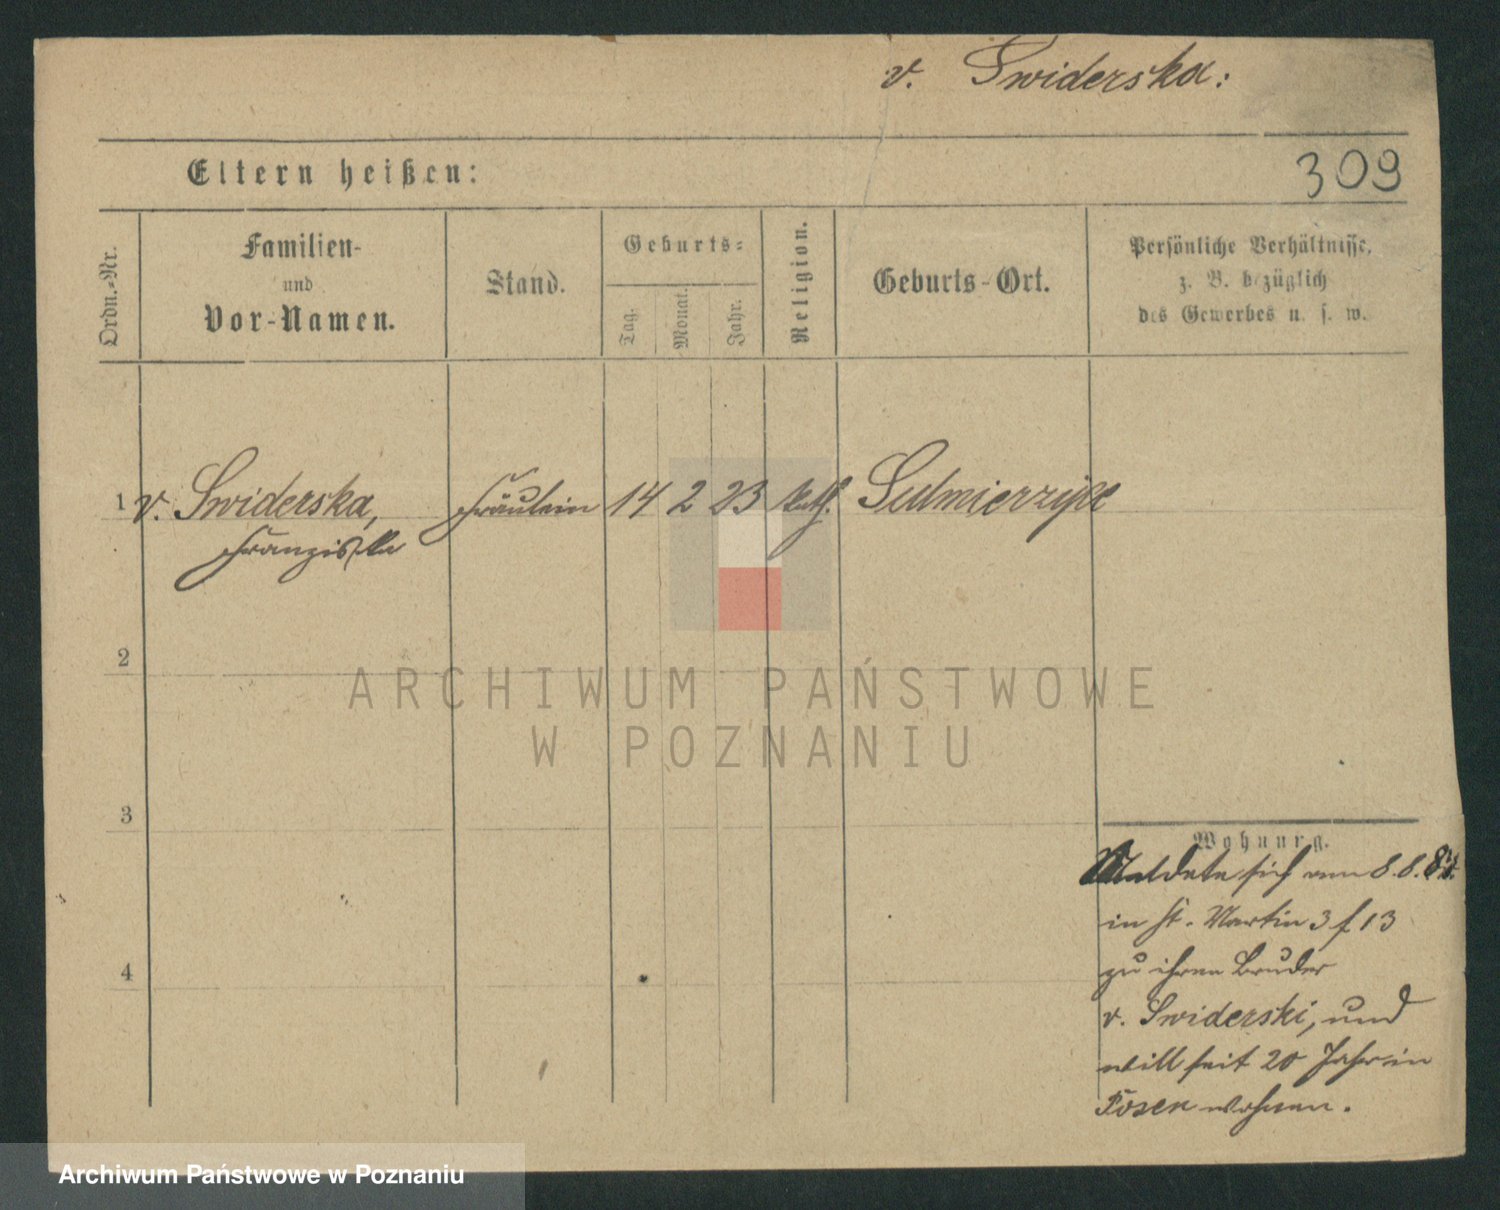 v. Swiderska:
Eltern heißen:
309
Ordn.-Nr.
Familien-
und
Vor-Namen.
Stand.
Geburts-
Tag.
Monat.
Jahr.
Religion.
Geburts-Ort.
Persönliche Verhältnisse,
z. B. bezüglich
des Gewerbes u. s. w.
1 v. Swiderska, Fräulein 14 2 23 kath. Sulmierzyce
Franziska
2
3
4
Wohnung.
Meldete sich am 8.8.
in St. Martin 3 f 13
zu ihren Bruder
v. Swiderski, und
will seit 20 Jahr in
Posen wohnen.
ARCHIWUM PAŃSTWOWE
W POZNANIU
Archiwum Państwowe w Poznaniu